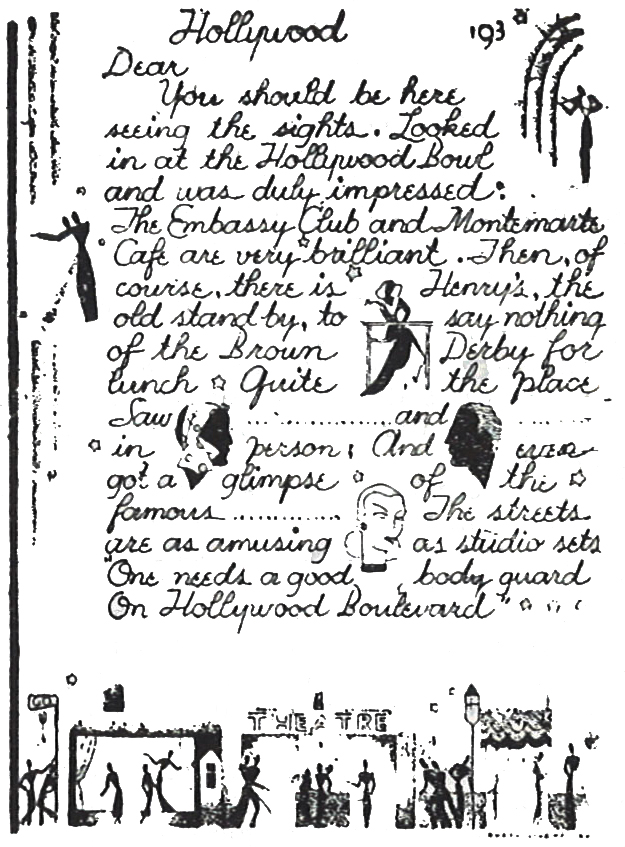 Hollywood 193
Dear
You should be here
seeing the sights. Looked
in at the Hollywood Bowl
and was duly impressed:
The Embassy Club and Montemarte
Cafe are very brilliant. Then, of
course, there is Henry's, the
old stand by, to say nothing
of the Broun Derby for
lunch Quite the place
Saw .................. and ..........
in person; And even
got a glimpse of the
famous ............. The streets
are as amusing as studio sets
"One needs a good body guard
On Hollywood Boulevard"
THEATRE